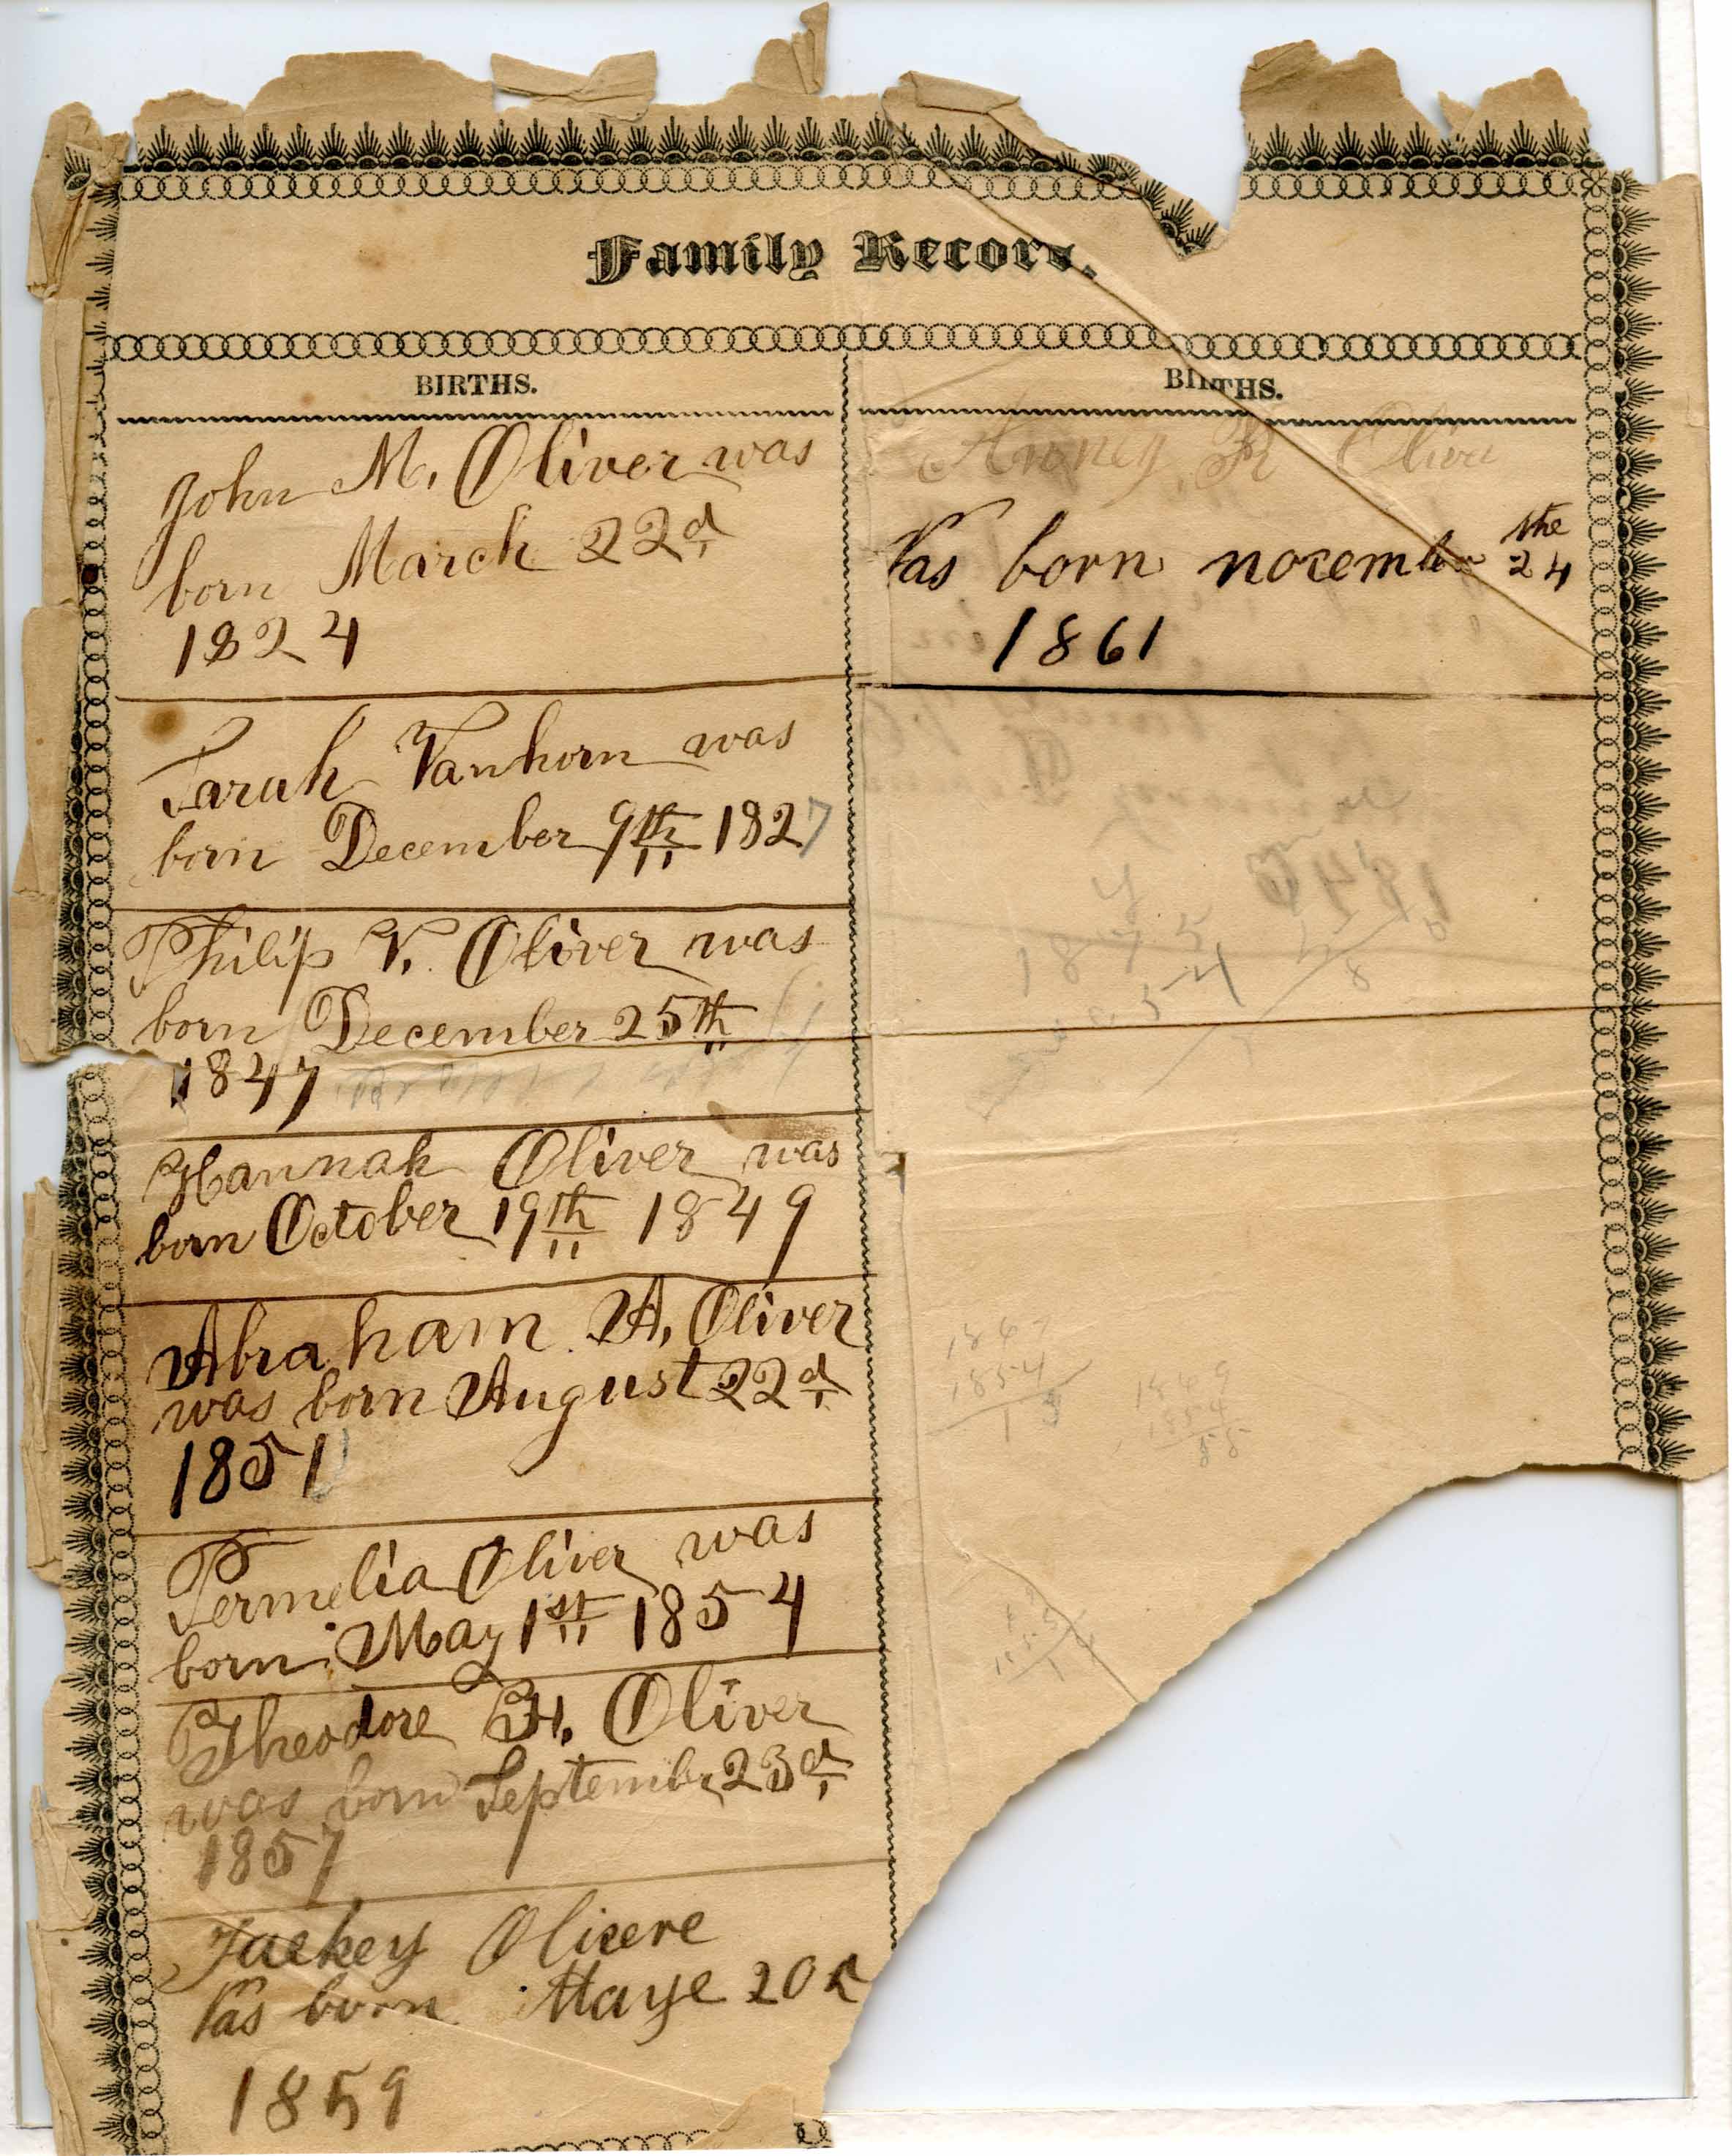 Family Record.
BIRTHS.
John M. Oliver was
born March 22d
1824
Sarah Vanhorn was
born December 9th 1827
Philip V. Oliver was
born December 25th
1847
Hannah Oliver was
born October 19th 1849
Abraham A. Oliver
was born August 22d
1851
Permelia Oliver was
born May 1st 1854
Theodore H. Oliver
was born September 23d
1857
Jackey Olivere
Vas born Maye 20
1859
BIRTHS.
R Olive
Vas born novembe the 24
1861
1854
1854